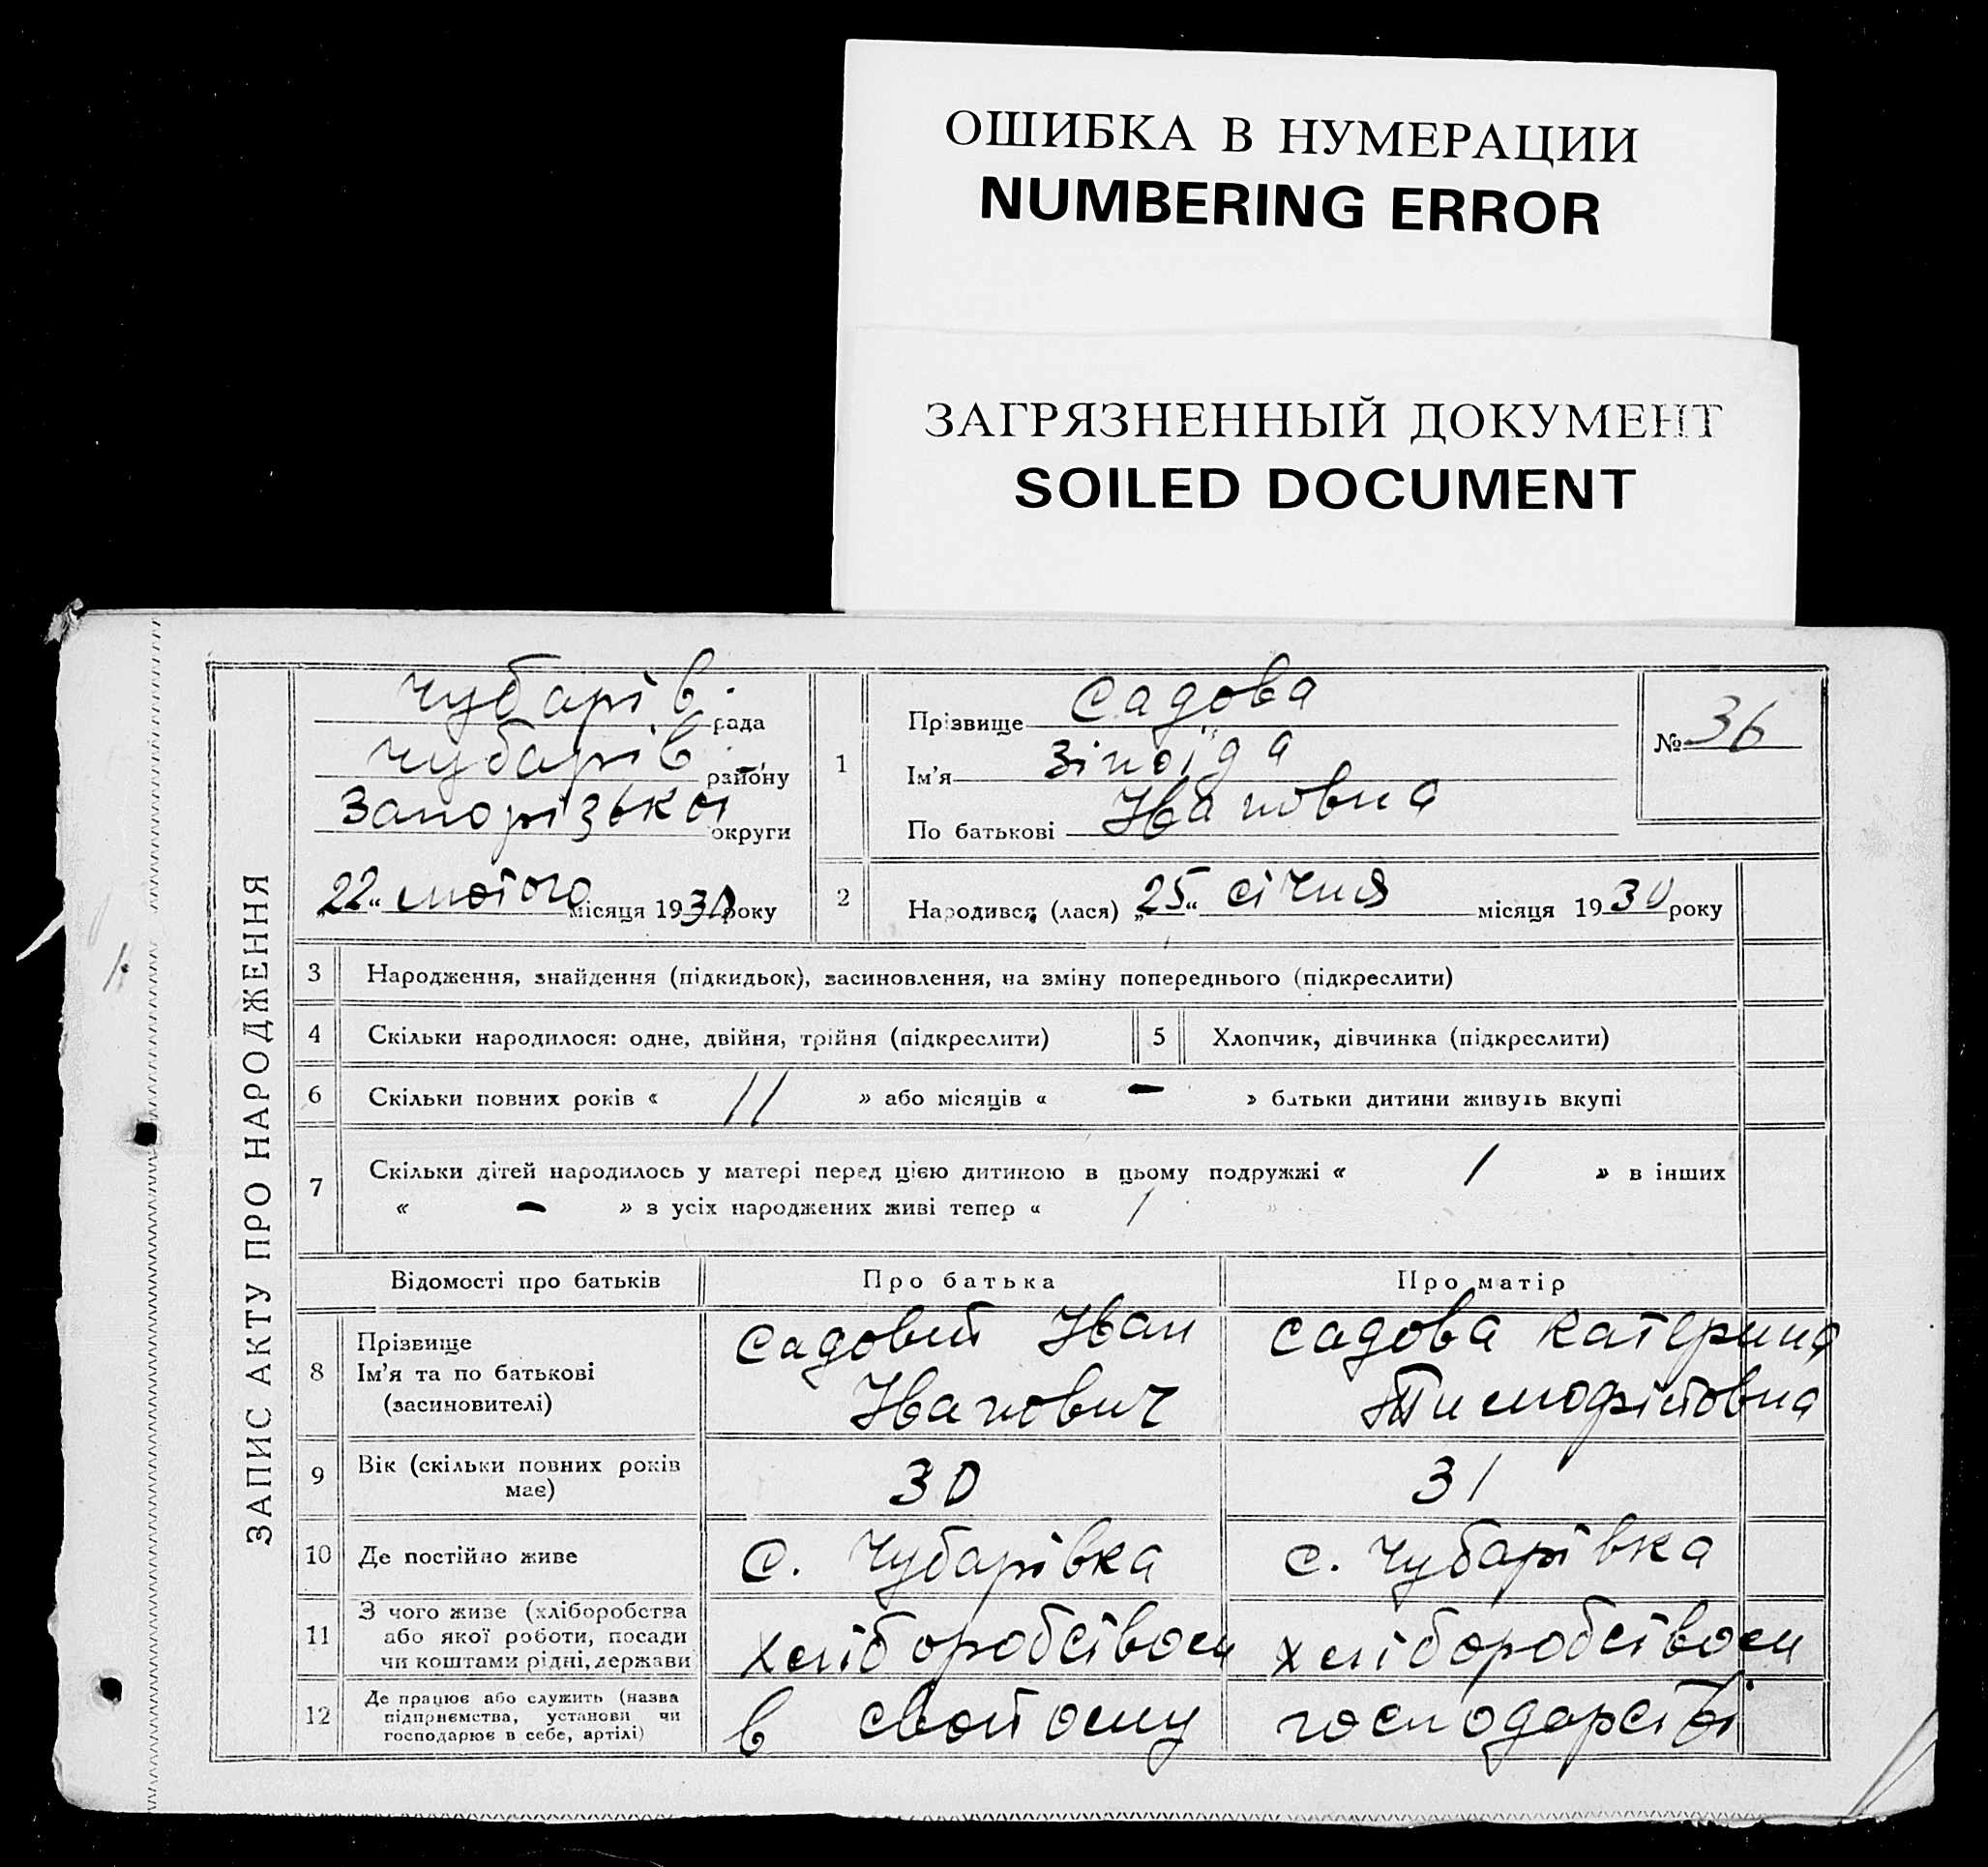 ОШИБКА В НУМЕРАЦИИ
NUMBERING ERROR
ЗАГРЯЗНЕННЫЙ ДОКУМЕНТ
SOILED DOCUMENT
ЗАПИС АКТУ ПРО НАРОДЖЕННЯ
Чубарів. рада
Чубарів. району
Запорізької округи
„22“ лютого місяця 1930 року
1
Прізвище Садова
Ім'я Зіноїда
По батькові Івановна
№ 36
2 Народився (лася) „25“ січня місяця 1930 року
3 Народження, знайдення (підкидьок), засиновлення, на зміну попереднього (підкреслити)
4 Скільки народилося: одне, двійня, трійня (підкреслити) 5 Хлопчик, дівчинка (підкреслити)
6 Скільки повних років « 11 » або місяців « - » батьки дитини живуть вкупі
7 Скільки дітей народилось у матері перед цією дитиною в цьому подружжі « 1 » в інших
« - » з усіх народжених живі тепер « 1 »
Відомості про батьків Про батька Про матір
8 Прізвище
Ім'я та по батькові
(засиновителі)
Садовий Іван
Іванович
Садова Катерина
Тимофійовна
9 Вік (скільки повних років
має)
30 31
10 Де постійно живе с. Чубарівка с. Чубарівка
11 З чого живе (хліборобства
або якої роботи, посади
чи коштами рідні, держави
хліборобством хліборобством
12 Де працює або служить (назва
підприємства, установи чи
господарює в себе, артілі)
в свойому господарстві